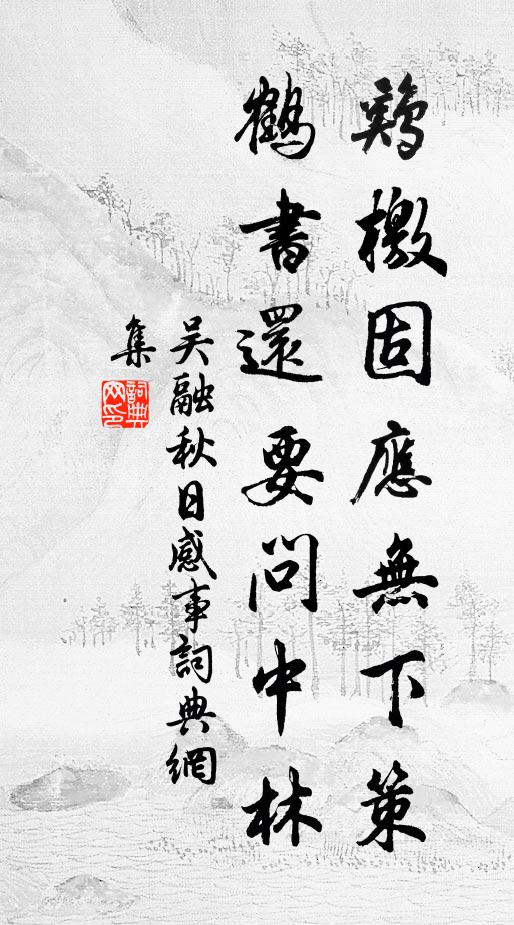 鷄檄固應無下策
鶴書還要問中林
吴融秋日感事詞典網
集
詞典网印